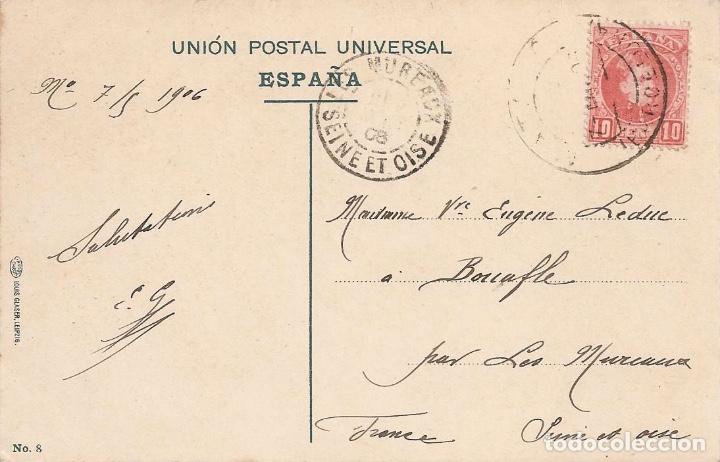 UNIÓN POSTAL UNIVERSAL
ESPAÑA
7/5 1906
LES MUREAUX
08
SEINE ET OISE
ESPAÑA
10 10
Salutations
E. G.
Madame Vve Eugène Leduc
à Bouafle
par Les Mureaux
France Seine et oise
LOUIS GLASER, LEIPZIG.
No. 8
todocoleccion